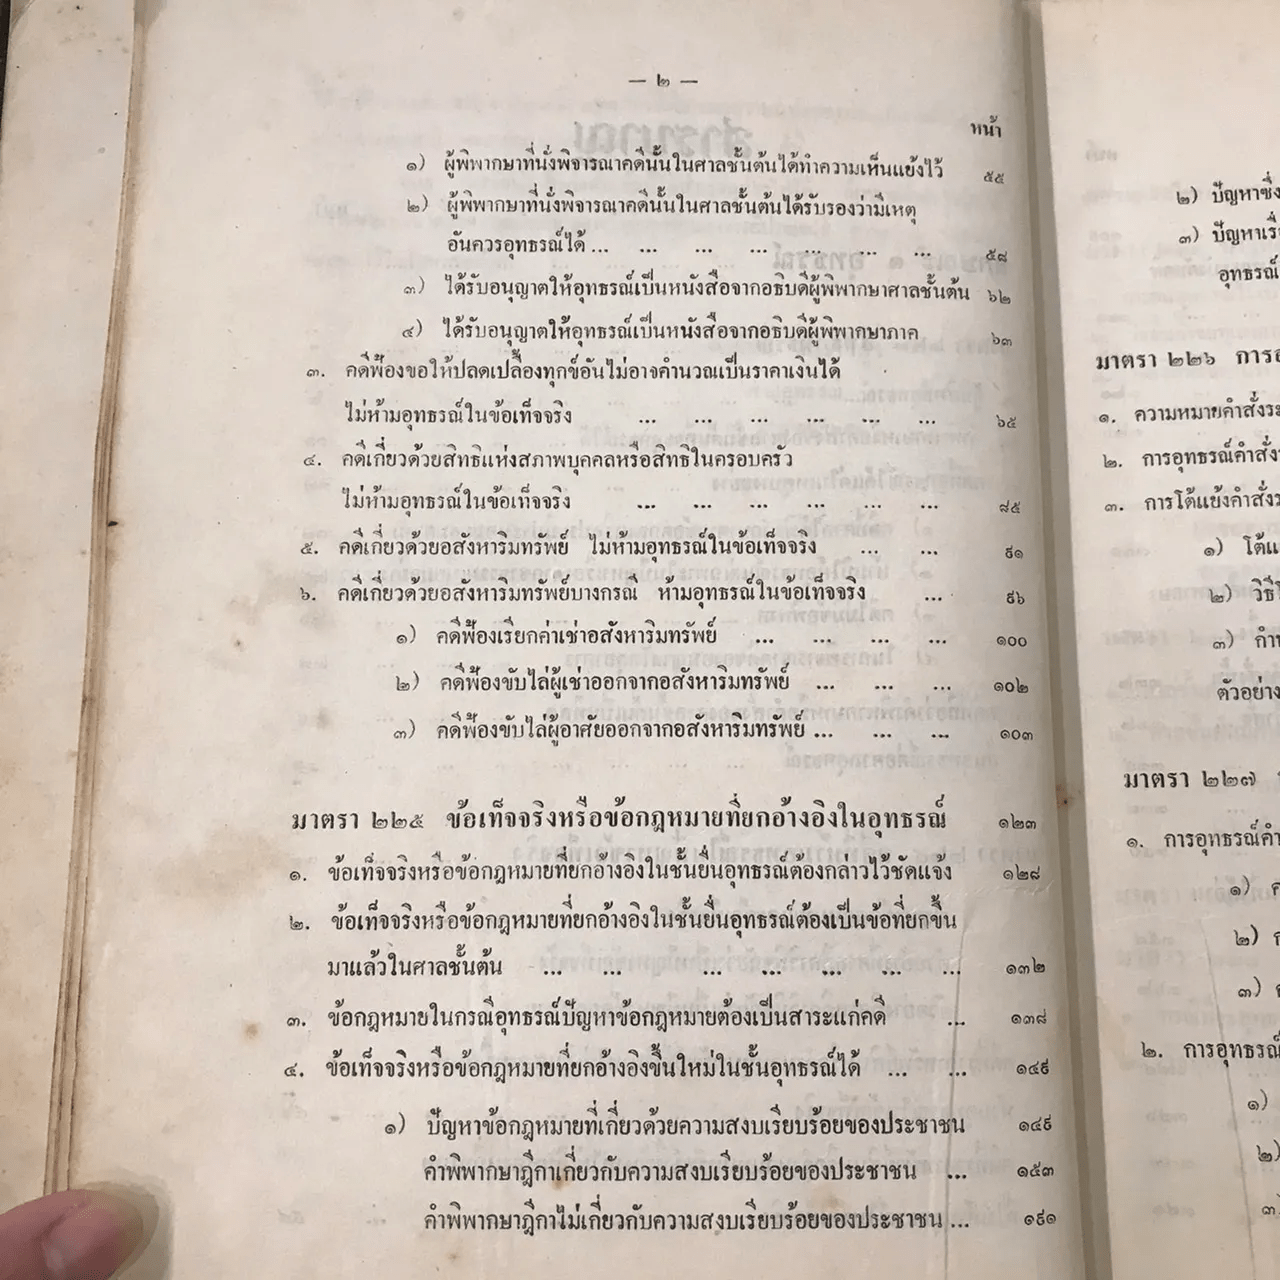 — ๒ —
หน้า
๑) ผู้พิพากษาที่นั่งพิจารณาคดีนั้นในศาลชั้นต้นได้ทำความเห็นแย้งไว้ ๕๕
๒) ผู้พิพากษาที่นั่งพิจารณาคดีนั้นในศาลชั้นต้นได้รับรองว่ามีเหตุ
อันควรอุทธรณ์ได้ ... ... ... ... ... ... ... ๕๘
๓) ได้รับอนุญาตให้อุทธรณ์เป็นหนังสือจากอธิบดีผู้พิพากษาศาลชั้นต้น ๖๒
๔) ได้รับอนุญาตให้อุทธรณ์เป็นหนังสือจากอธิบดีผู้พิพากษาภาค ๖๓
๓. คดีฟ้องขอให้ปลดเปลื้องทุกข์อันไม่อาจคำนวณเป็นราคาเงินได้
ไม่ห้ามอุทธรณ์ในข้อเท็จจริง ... ... ... ... ... ... ๖๕
๔. คดีเกี่ยวด้วยสิทธิแห่งสภาพบุคคลหรือสิทธิในครอบครัว
ไม่ห้ามอุทธรณ์ในข้อเท็จจริง ... ... ... ... ... ... ๘๕
๕. คดีเกี่ยวด้วยอสังหาริมทรัพย์ ไม่ห้ามอุทธรณ์ในข้อเท็จจริง ... ... ๙๑
๖. คดีเกี่ยวด้วยอสังหาริมทรัพย์บางกรณี ห้ามอุทธรณ์ในข้อเท็จจริง ... ๙๖
๑) คดีฟ้องเรียกค่าเช่าอสังหาริมทรัพย์ ... ... ... ... ๑๐๐
๒) คดีฟ้องขับไล่ผู้เช่าออกจากอสังหาริมทรัพย์ ... ... ... ๑๐๒
๓) คดีฟ้องขับไล่ผู้อาศัยออกจากอสังหาริมทรัพย์ ... ... ... ๑๐๓
มาตรา ๒๒๕ ข้อเท็จจริงหรือข้อกฎหมายที่ยกอ้างอิงในอุทธรณ์ ๑๒๓
๑. ข้อเท็จจริงหรือข้อกฎหมายที่ยกอ้างอิงในชั้นยื่นอุทธรณ์ต้องกล่าวไว้ชัดแจ้ง ๑๒๘
๒. ข้อเท็จจริงหรือข้อกฎหมายที่ยกอ้างอิงในชั้นยื่นอุทธรณ์ต้องเป็นข้อที่ยกขึ้น
มาแล้วในศาลชั้นต้น ... ... ... ... ... ... ... ๑๓๒
๓. ข้อกฎหมายในกรณีอุทธรณ์ปัญหาข้อกฎหมายต้องเป็นสาระแก่คดี ... ๑๓๘
๔. ข้อเท็จจริงหรือข้อกฎหมายที่ยกอ้างอิงขึ้นใหม่ในชั้นอุทธรณ์ได้ ... ... ๑๔๙
๑) ปัญหาข้อกฎหมายที่เกี่ยวด้วยความสงบเรียบร้อยของประชาชน ๑๔๙
คำพิพากษาฎีกาเกี่ยวกับความสงบเรียบร้อยของประชาชน ... ๑๕๓
คำพิพากษาฎีกาไม่เกี่ยวกับความสงบเรียบร้อยของประชาชน ... ๑๙๑
๒) ปัญหาซึ่ง
๓)
อุทธรณ์
มาตรา ๒๒๖
๑. ความหมายคำสั่ง
๒. การอุทธรณ์คำสั่ง
๓. การโต้แย้งคำสั่ง
๑)
๒)
๓)
ตัวอย่าง
มาตรา ๒๒๗
๑. การอุทธรณ์
๑)
๒)
๓)
๒. การอุทธรณ์
๑)
๒)
๓)